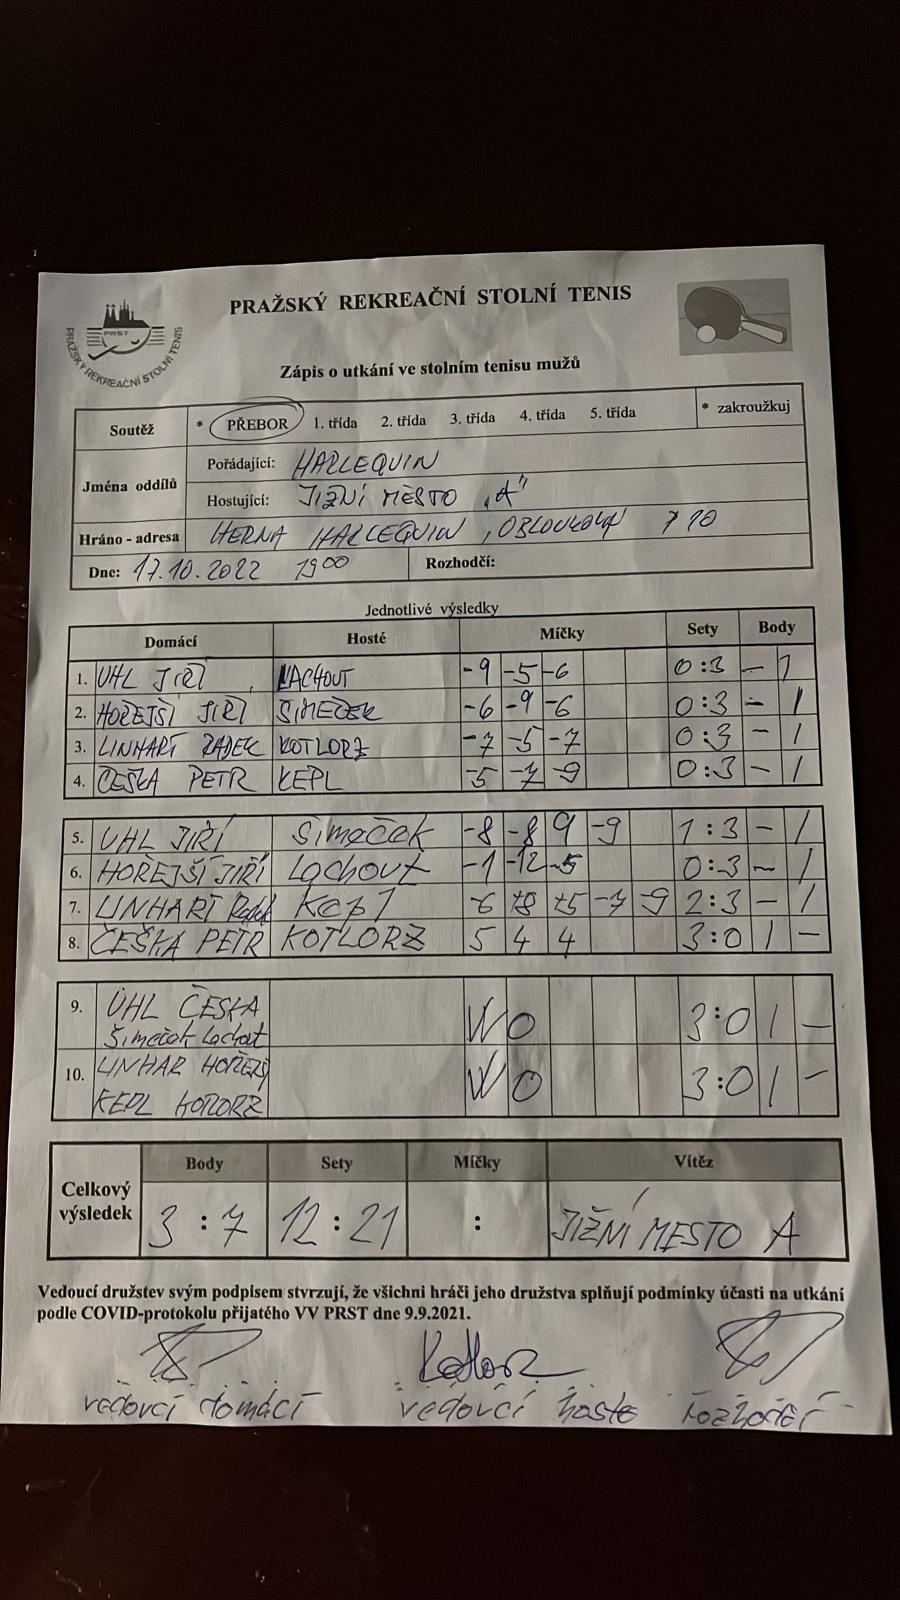 PRAŽSKÝ REKREAČNÍ STOLNÍ TENIS
PRST
PRAŽSKÝ REKREAČNÍ STOLNÍ TENIS
Zápis o utkání ve stolním tenisu mužů
Soutěž * PŘEBOR 1. třída 2. třída 3. třída 4. třída 5. třída * zakroužkuj
Jména oddílů
Pořádající: HARLEQUIN
Hostující: JIŽNÍ MĚSTO „A"
Hráno - adresa HERNA HARLEQUIN, OBLOUKOVÁ
Dne: 17.10.2022 19 00 Rozhodčí:
Jednotlivé výsledky
Domácí Hosté Míčky Sety Body
1. UHL JIŘÍ LACHOUT -9 -5 -6 0:3 - 1
2. HOŘEJŠÍ JIŘÍ ŠIMEČEK -6 -9 -6 0:3 - 1
3. LINHART RADEK KOTLORZ -7 -5 -7 0:3 - 1
4. ČEŠKA PETR KEPL -5 -7 -9 0:3 - 1
5. UHL JIŘÍ Šimeček -8 -8 9 -9 1:3 - 1
6. HOŘEJŠÍ JIŘÍ Lachout -1 -12 -5 0:3 - 1
7. LINHART Radek Kepl -6 +8 +5 -7 -9 2:3 - 1
8. ČEŠKA PETR KOTLORZ 5 4 4 3:0 1 -
9. UHL ČEŠKA WO 3:0 1 -
Šimeček Lachout
10. LINHAR HOŘEJŠ WO 3:0 1 -
KEPL KOTLORZ
Celkový výsledek
Body Sety Míčky Vítěz
3 : 7 12 : 21 : JIŽNÍ MESTO A
Vedoucí družstev svým podpisem stvrzují, že všichni hráči jeho družstva splňují podmínky účasti na utkání
podle COVID-protokolu přijatého VV PRST dne 9.9.2021.
Kotlorz
vedoucí domácí vedoucí hosté rozhodčí